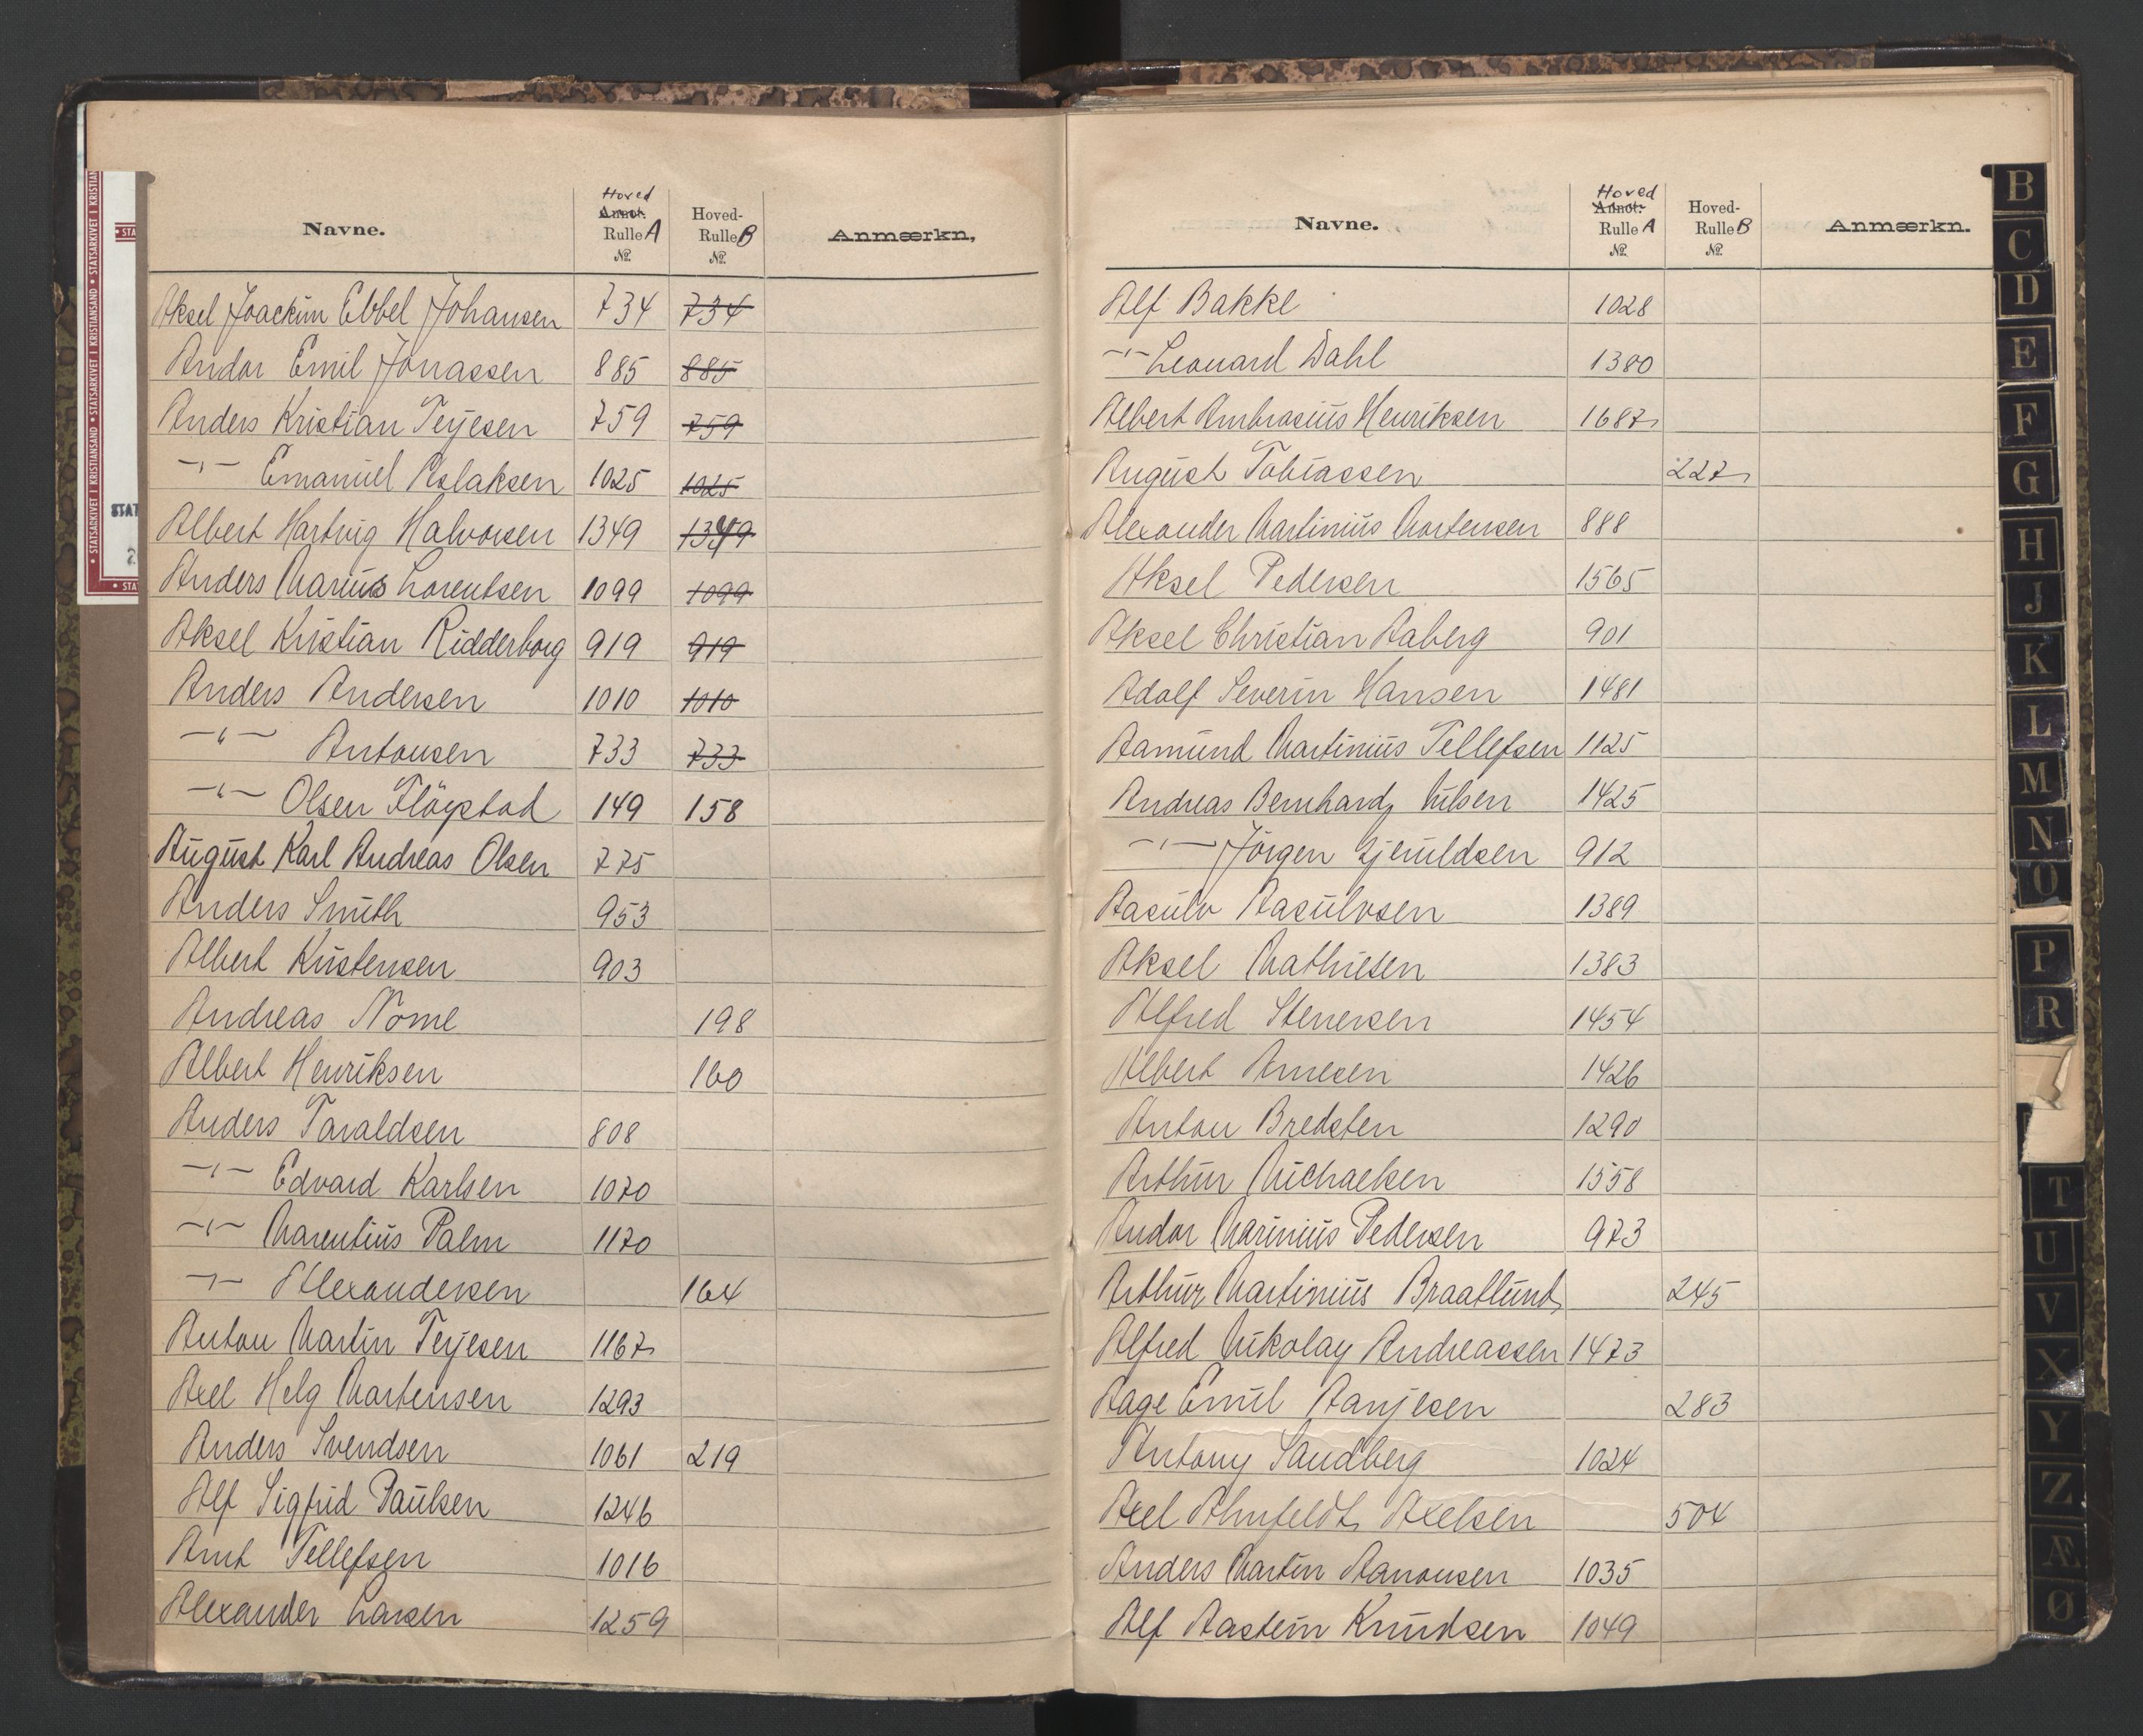 Hoved
Navne. Annot. Rulle A № Hoved-Rulle B № Anmærkn,
Aksel Joackim Ebbel Johansen 734 734
Andor Emil Jonassen 885 885
Anders Kristian Terjesen 759 759
-"- Emanuel Aslaksen 1025 1025
Albert Hartvig Halvorsen 1349 1349
Anders Marius Lorentsen 1099 1099
Aksel Kristian Ridderborg 919 919
Anders Andersen 1010 1010
-"- Antonsen 733 733
-"- Olsen Flöystad 149 158
August Karl Andreas Olsen 775
Anders Smith 953
Albert Kristensen 903
Andreas Nome 198
Albert Henriksen 160
Anders Taraldsen 808
-"- Edvard Karlsen 1070
-"- Marentius Palm 1170
-"- Alexandersen 164
Anton Martin Terjesen 1167
Axel Helg Mortensen 1293
Anders Svendsen 1061 219
Alf Sigfrid Paulsen 1246
Arnt Tellefsen 1016
Alexander Larsen 1259
Hoved
Navne. Annot. Rulle A № Hoved-Rulle B № Anmærkn.
Alf Bakke 1028
-"- Leonard Dahl 1380
Albert Ambrosius Henriksen 1687
August Tobiassen 227
Alexander Martinius Mortensen 888
Aksel Pedersen 1565
Aksel Christian Aaberg 901
Adolf Severin Hansen 1481
Aamund Martinius Tellefsen 1125
Andreas Bernhard Nilsen 1425
-"- Jörgen Gjeruldsen 912
Aasulv Aasulvsen 1389
Aksel Mathiesen 1383
Alfred Stenersen 1454
Albert Arnesen 1426
Anton Bredsten 1290
Arthur Michaelsen 1558
Andor Marinius Pedersen 973
Arthur Martinius Braatlund 245
Alfred Nikolay Andreassen 1473
Aage Emil Aanjesen 283
Antony Sandberg 1024
Axel Almfeldt Axelsen 504
Anders Martin Aanonsen 1035
Alf Aastein Knudsen 1049
B
C
D
E
F
G
H
J
K
L
M
N
O
P
R
T
U
V
X
Y
Z
Æ
Ø
STATSARKIVET I KRISTIANSAND • STATSARKIVET I KRISTIANSAND • STATSARKIVET I KRISTIAN
STAT